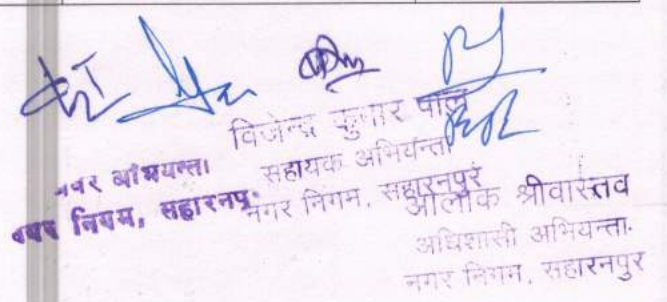 विजेन्द्र कुमार पाल
सहायक अभियन्ता
नगर निगम, सहारनपुर
अवर अभियन्ता
नगर निगम, सहारनपुर
आलोक श्रीवास्तव
अधिशासी अभियन्ता.
नगर निगम, सहारनपुर